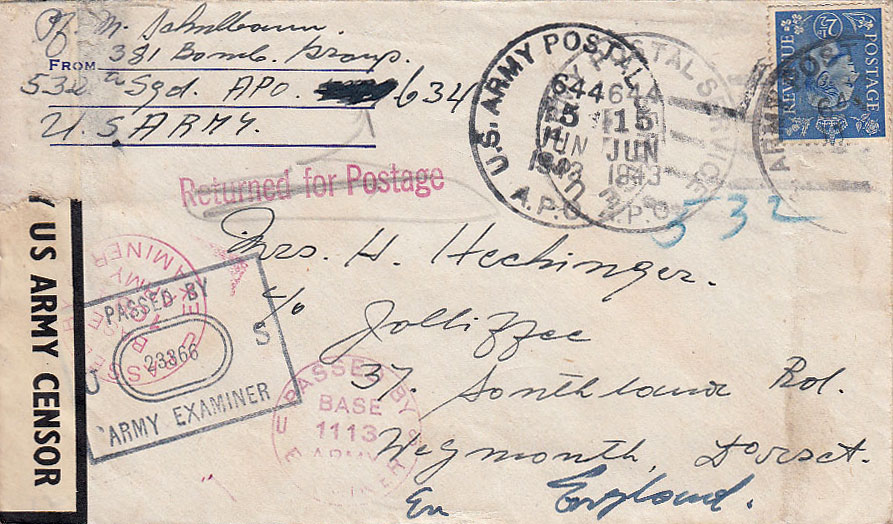 Pfc M. Schulbaum.
FROM 381 Bomb. Group.
532 Sqd. APO. 634
U.S ARMY.
Returned for Postage
U.S. ARMY POSTAL
644
5
JUN
1943
A.P.O.
POSTAL SERVICE
644
15
JUN
1943
A.P.O.
ARMY POST
REVENUE
POSTAGE
2½D
532
Mrs. H. Hechinger.
c/o
Jolliffee
37. Southland Rd.
Weymouth, Dorset.
En England.
Y US ARMY CENSOR
PASSED BY
U 23366 S
ARMY EXAMINER
PASSED BY
BASE
1113
ARMY
EXAMINER